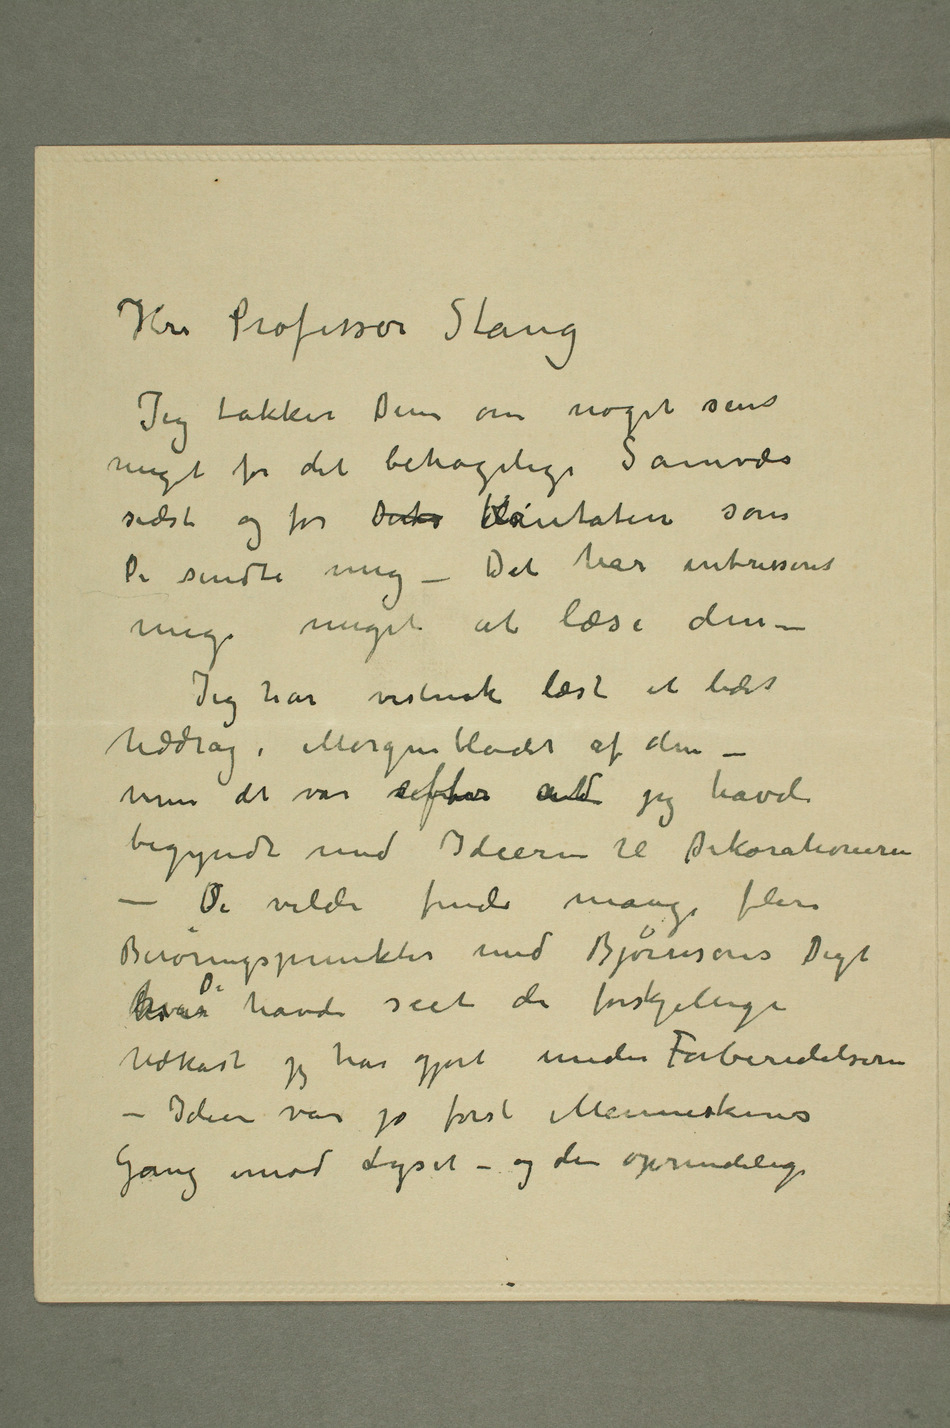 Hrr Professor Stang
Jeg takker Dem om noget sent
meget for det behagelige Samvær
sidst og for Kantaten som
De sendte mig – Det har intresseret
mig meget at læse den –
Jeg har vistnok læst et lidet
Uddrag i Morgenbladet af den –
men det var efter at jeg havde
begyndt med Ideerne til Dekorationerne
– De vilde finde mange flere
Berøringspunkter med Bjørnsons Digt
hvis De havde seet de forskjellige
Udkast jeg har gjort under Forberedelserne
– Ideen var jo først Menneskenes
Gang imod Lyset – og den oprindelige